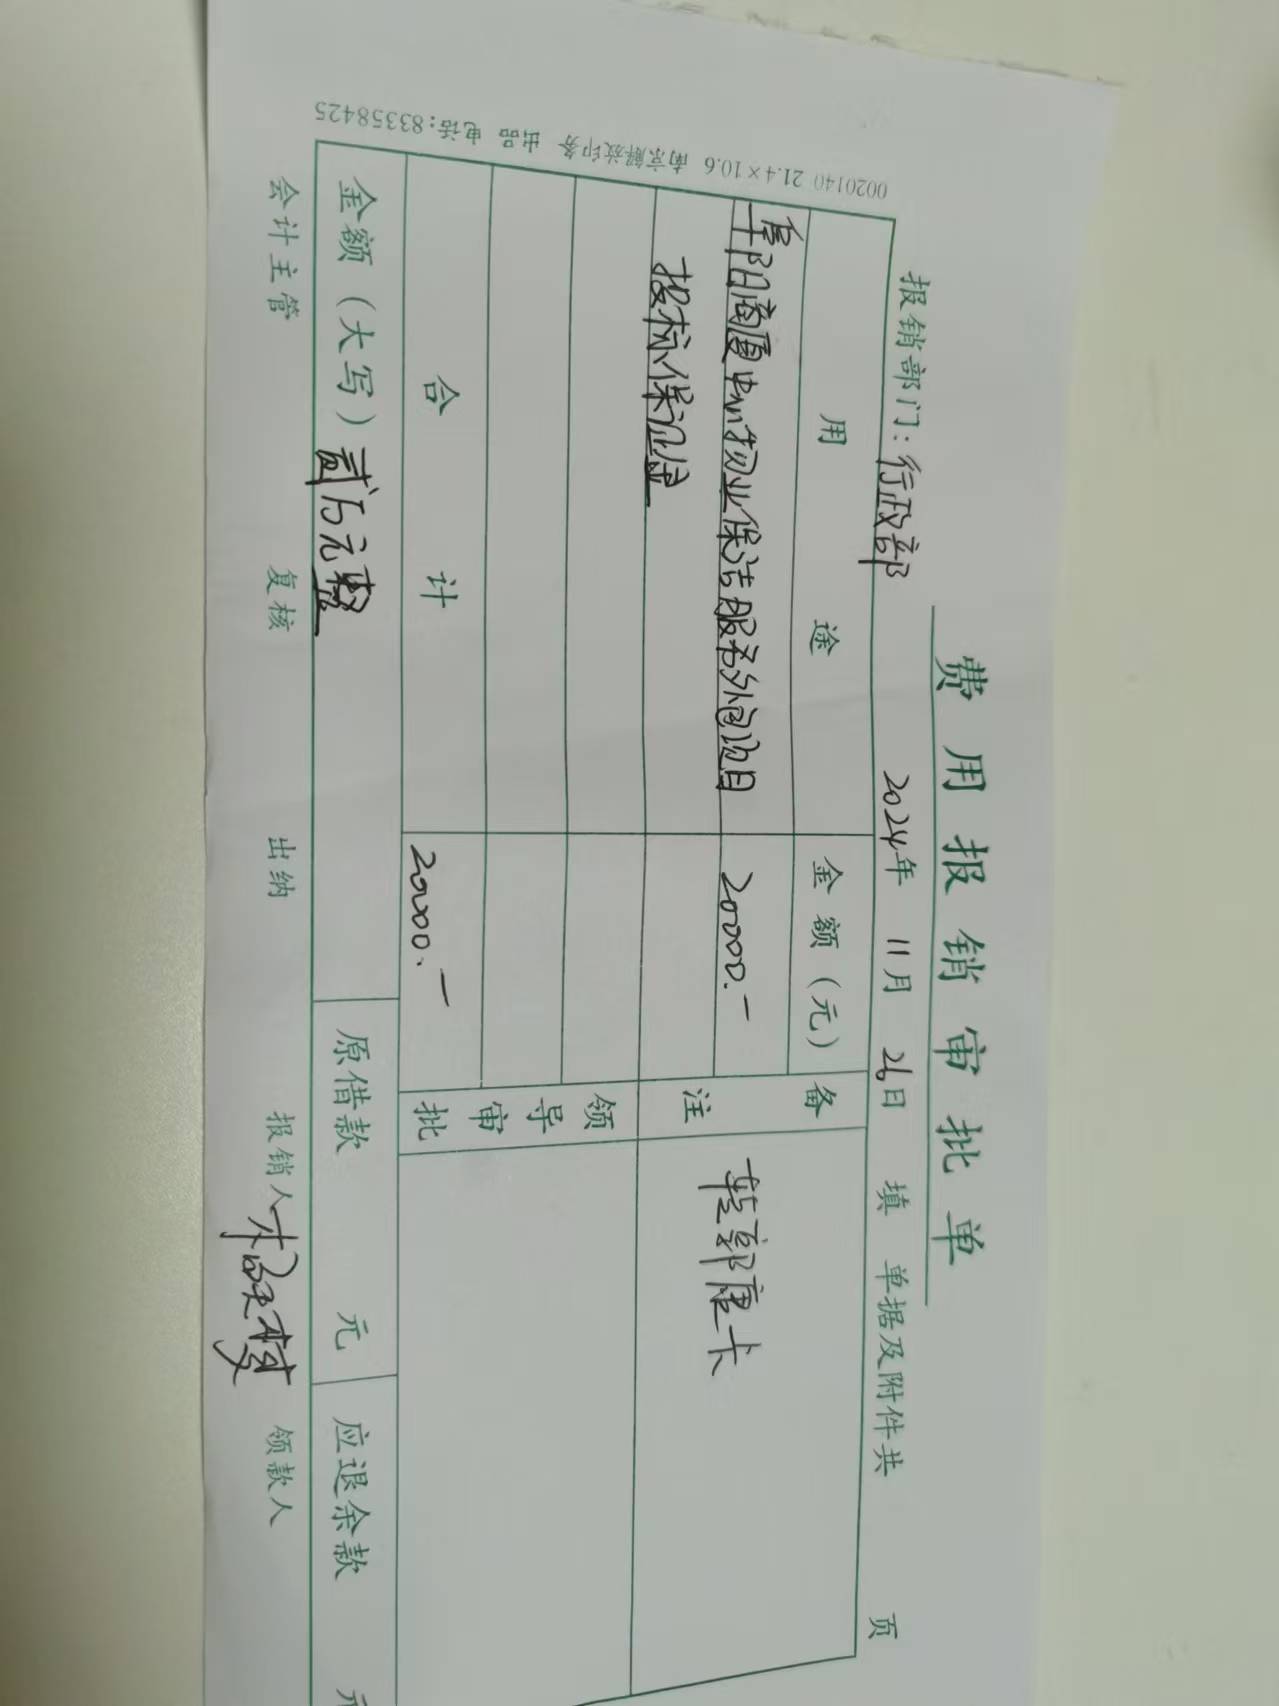 费用报销审批单
报销部门：行政部 2024年 11月 26日 填 单据及附件共 页
用 途 金额（元） 备注
阜阳商厦中心物业保洁服务外包项目 20000.- 转郭康卡
投标保证金
领导审批
合 计 20000.-
金额（大写）贰万元整 原借款 元 应退余款 元
会计主管 复核 出纳 报销人 领款人
0020140 21.4×10.6 南京解放印务 出品 电话：83358425